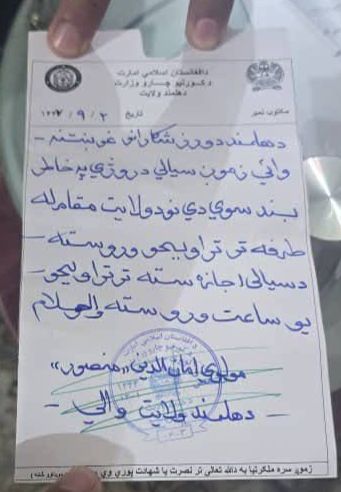 دافغانستان اسلامي امارت
د کورنیو چارو وزارت
دهلمند ولایت
مکتوب نمبر
تاریخ ۲ / ۹ / ۱۴۴۷
دهلمند د ورزشکارانو غوښتنه -
وائي زموږ سیالي د روژې په خاطر
بند سوي دي نو د ولایت مقام له
طرفه تر تراویحو وروسته -
د سیالۍ اجازه سته تر تراویحو -
یو ساعت وروسته والسلام
مولوي امان الدین «منصور»
- دهلمند ولایت والي -
زموږ سره ملګرتیا به دالله تعالی تر نصرت یا شهادت پوري وي